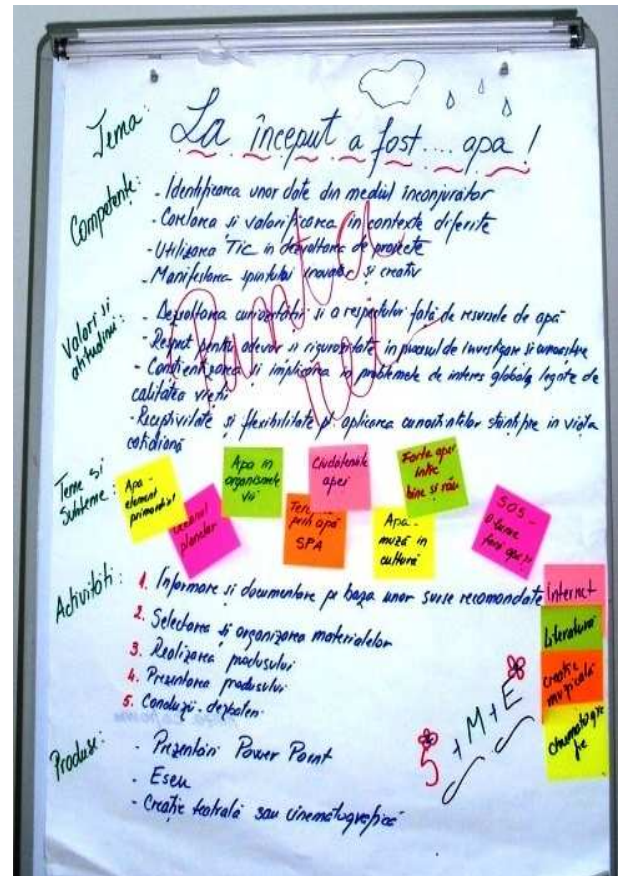 Tema:
La început a fost.... apa!
Competente:
- Identificarea unor date din mediul inconjurător
- Corelarea si valorificarea in contexte diferite
- Utilizarea TIC in dezvoltarea de proiecte
- Manifestarea spiritului inovator și creativ
Valori si
atitudini:
- Dezvoltarea curiozității si a respectului față de resursele de apă
- Respect pentru adevăr si rigurozitate in procesul de investigare si cunoastere
- Constientizarea si implicarea in problemele de interes global, legate de
calitatea vieții
- Receptivitate și flexibilitate pt aplicarea cunostintelor stiintifice in viața
cotidiană
Punctul
Teme si
Subteme:
Apa -
element
primordial
Oceanul
planetar
Apa in
organismele
vii
Terapia
prin apă
SPA
Ciudățeniile
apei
Apa -
muză in
cultură
Forța apei
între
bine și rău
SOS -
O lume
fără apă
Activități:
1. Informare si documentare pe baza unor surse recomandate
2. Selectarea și organizarea materialelor
3. Realizarea produsului
4. Prezentarea produsului
5. Concluzii - dezbateri
internet
Literatură
creație
muzicală
5 + M + E
Produse:
- Prezentări Power Point
- Eseu
- Creație teatrală sau cinematografică